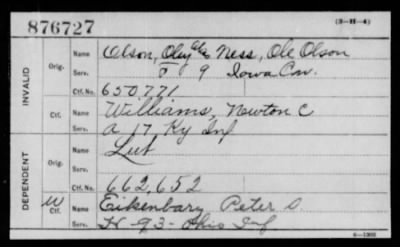 876727
(3-H-4)
INVALID
Orig.
Name Olson, Oley als Ness, Ole Olson
Serv. F 9 Iowa Cav.
Ctf. No. 650771
Ctf. Name Williams, Newton C
Serv. A 17, Ky Inf
DEPENDENT
Orig.
Name
Serv.
Ctf. No. 662,652
W
Ctf. Name Eikenbary Peter S.
Serv. H-93-Ohio Inf